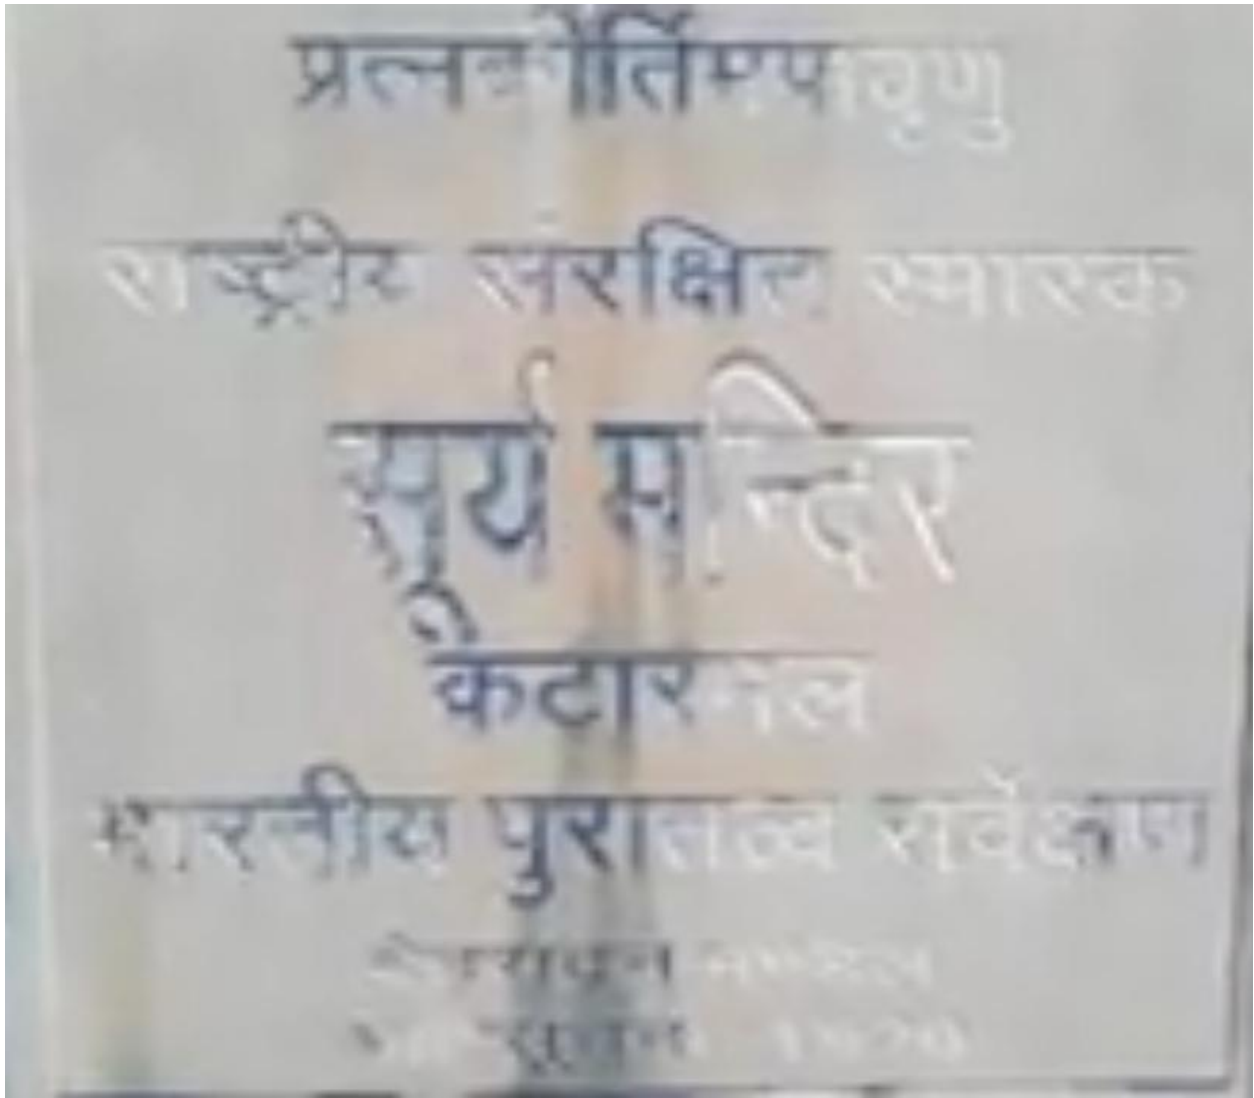 प्रत्नकीर्तिमपावृणु
राष्ट्रीय संरक्षित स्मारक
सूर्य मन्दिर
कटारमल
भारतीय पुरातत्व सर्वेक्षण
देहरादून मण्डल